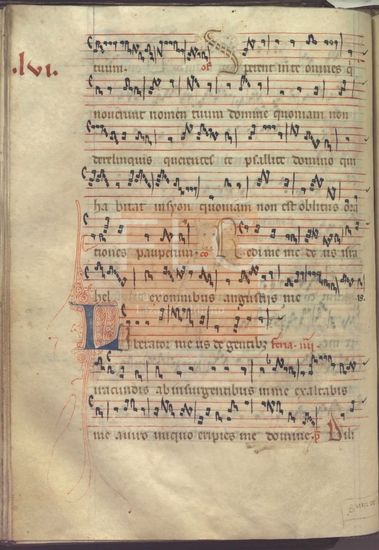 .lvi.
tuum. of Sperent in te omnes q
nouerunt nomen tuum domine quoniam non
derelinquis querentes te psallite domino qui
habitat in syon quoniam non est oblitus ora
tiones pauperum. co Redime me deus isra
hel ex omnibus angustijs me is.
Liberator meus de gentibus feria. iiij.
iracundis ab insurgentibus in me exaltabis
me a uiro iniquo eripies me domine. p Dili